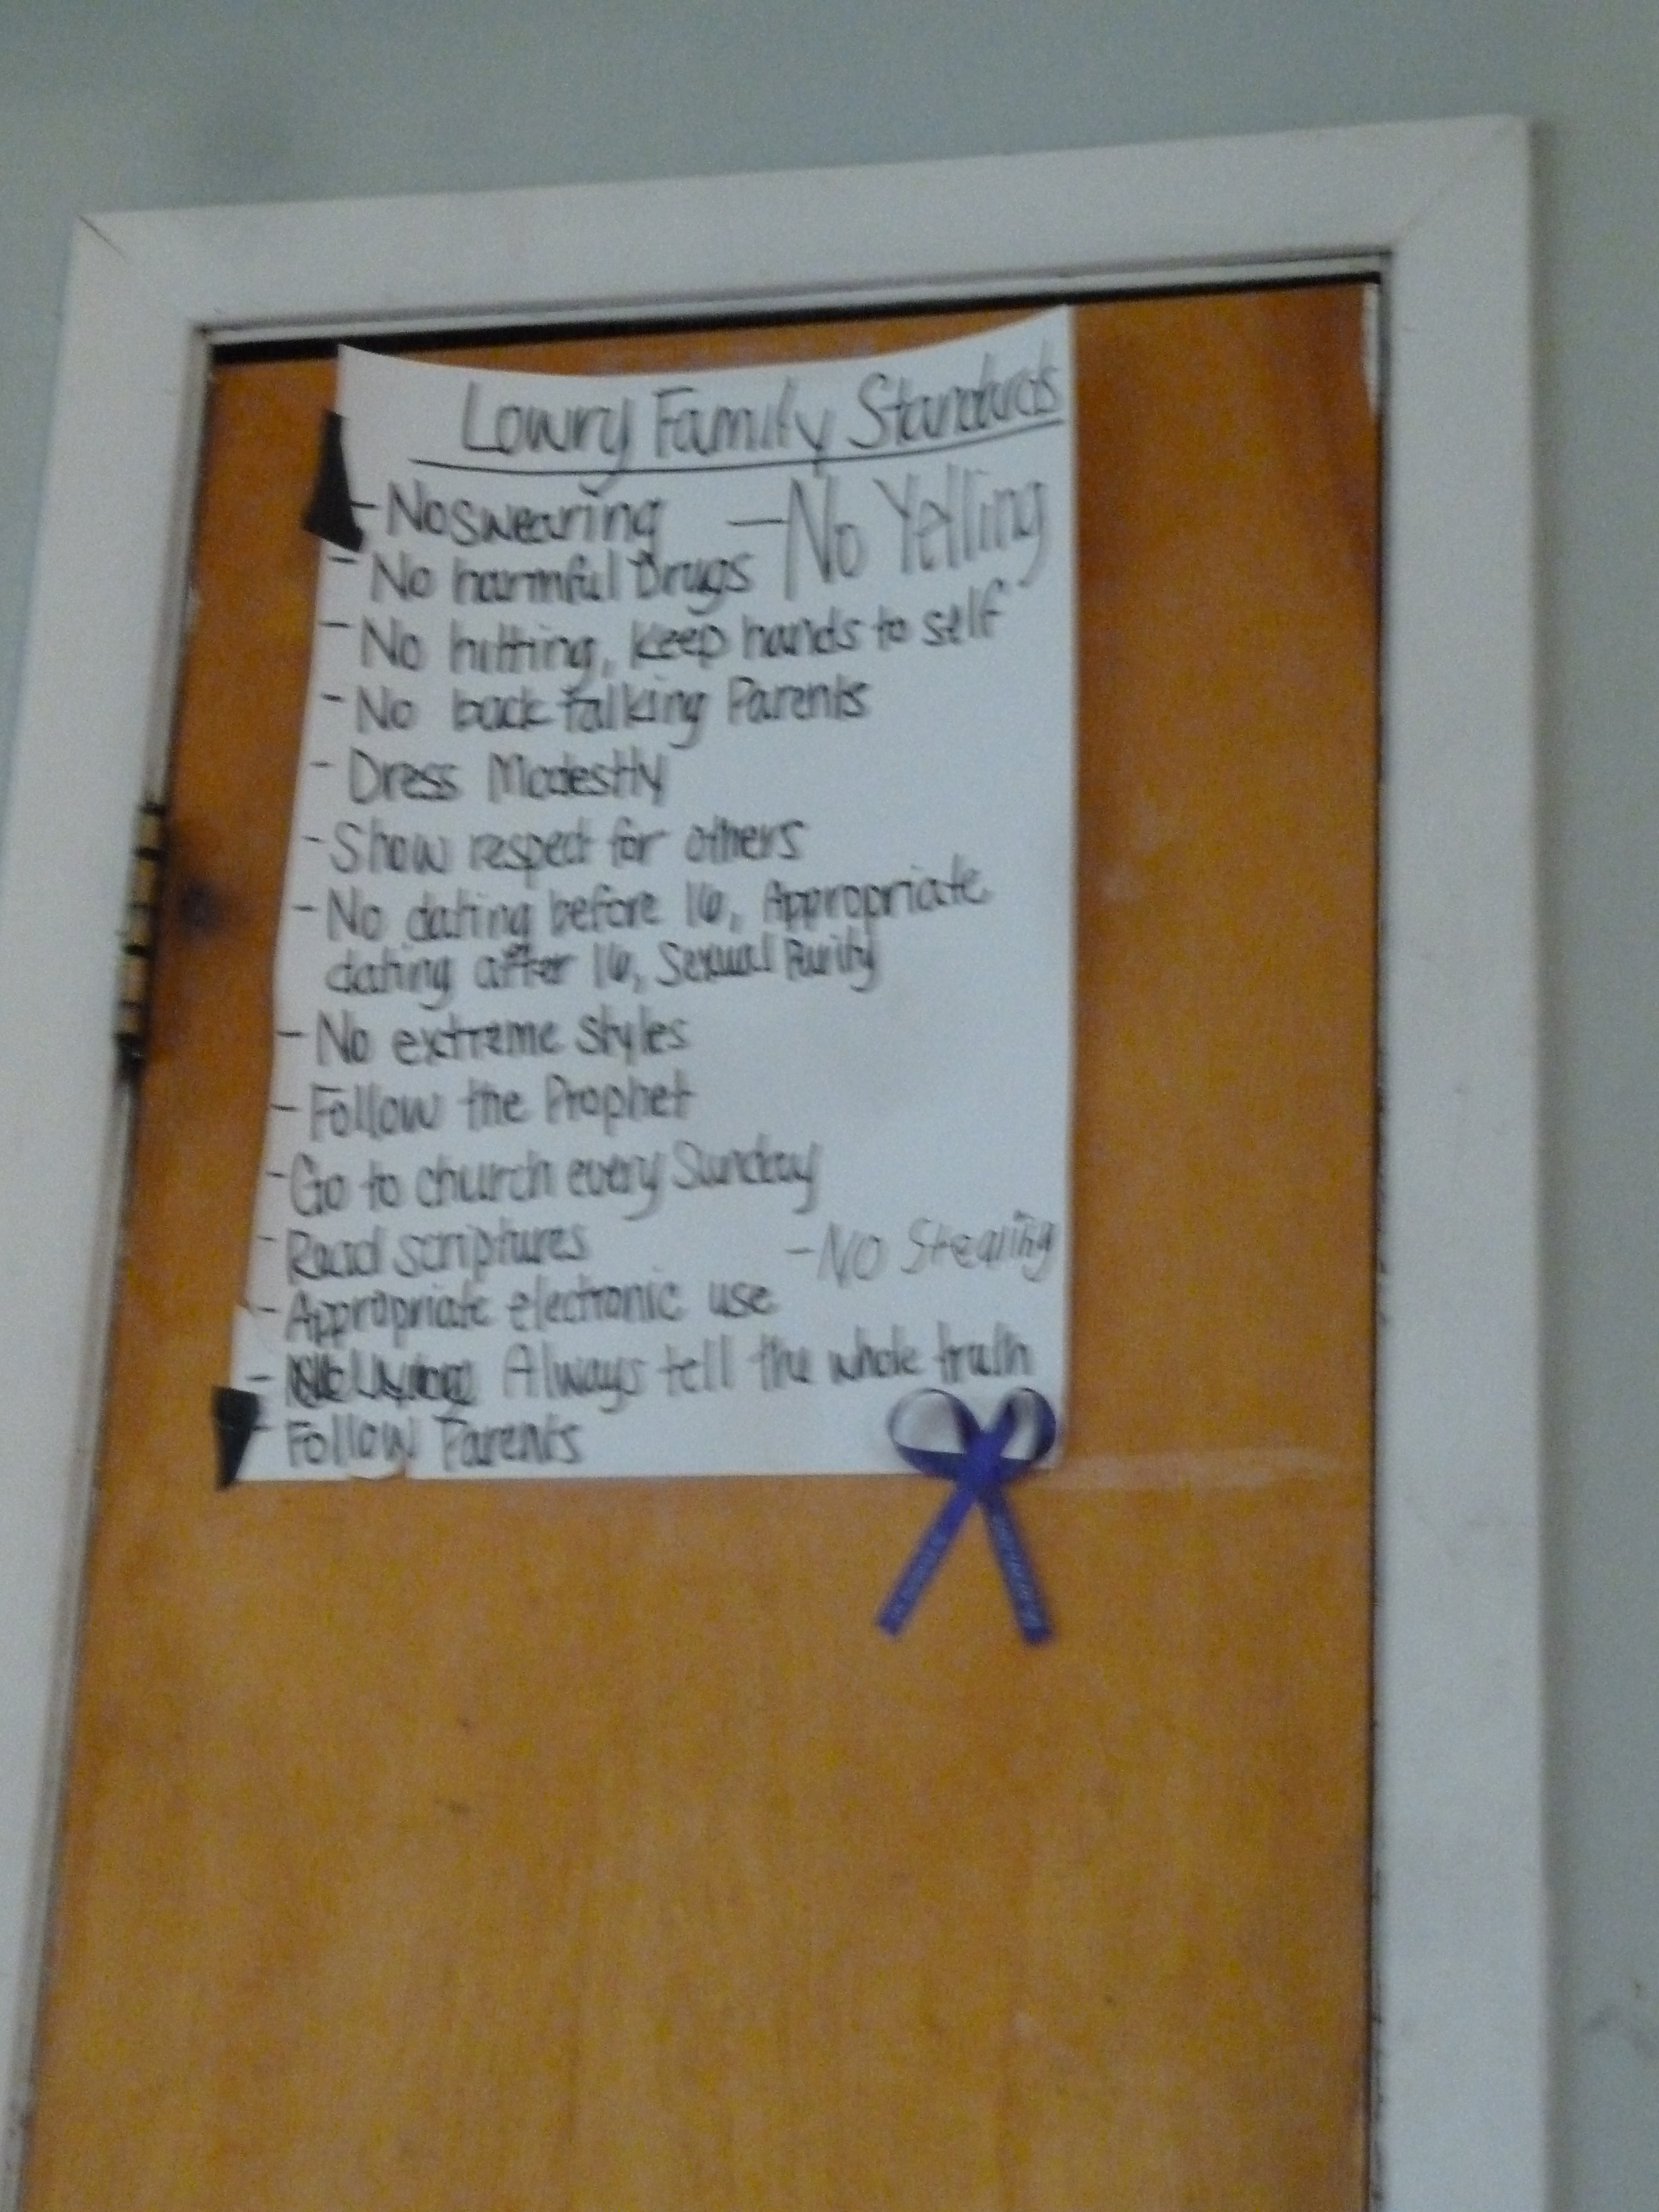 Lowry Family Standards
- No swearing - No Yelling
- No harmful Drugs
- No hitting, keep hands to self
- No back talking Parents
- Dress Modestly
- Show respect for others
- No dating before 16, Appropriate
dating after 16, Sexual Purity
- No extreme styles
- Follow the Prophet
- Go to church every Sunday
- Read scriptures
- No Stealing
- Appropriate electronic use
- Always tell the whole truth
- Follow Parents